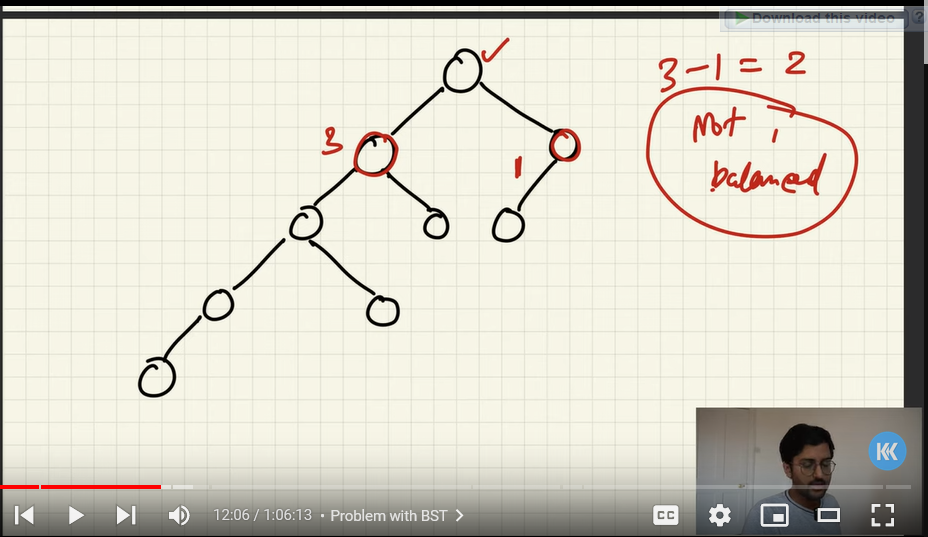 Download this video
?
3-1 = 2
3
Not
1
balanced
12:06 / 1:06:13 • Problem with BST >
CC